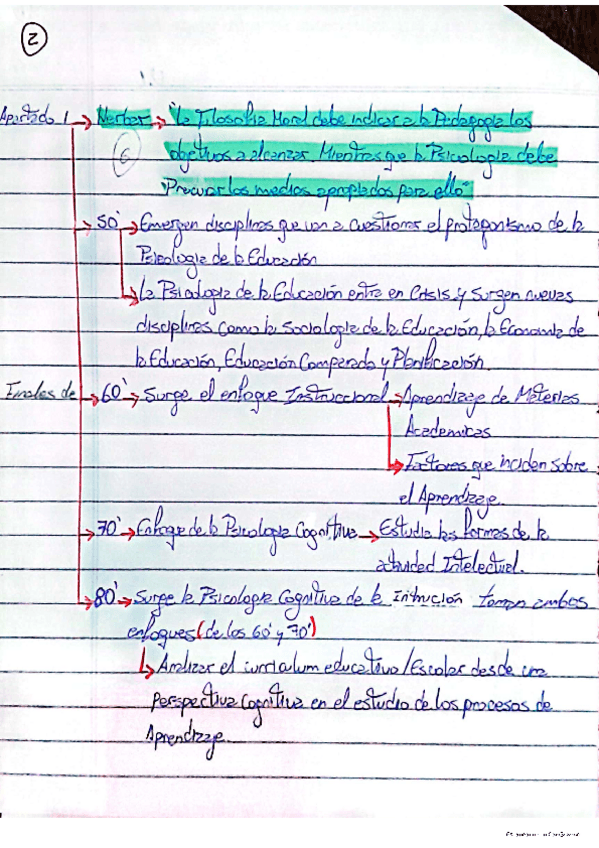 2
Apartado 1 → Herbar → "La Filosofia Moral debe indicar a la Pedagogia los
6
objetivos a alcanzar. Mientras que la Psicologia debe
"Procurar los medios apropiados para ello"
50' → Emergen disciplinas que van a cuestionar el protagonismo de la
Psicologia de la Educación
La Psicologia de la Educación entra en Crisis y Surgen nuevas
disciplinas como la Sociologia de la Educación, la Economia de
la Educación, Educación Comparada y Planificación.
Finales de → 60' → Surge el enfoque Instruccional → Aprendizaje de Materias
Academicas
→ Factores que inciden sobre
el Aprendizaje.
→ 70' → Enfoque de la Psicologia Cognitiva → Estudia las formas de la
actividad Intelectual.
→ 80' → Surge la Psicologia Cognitiva de la Intrucción toman ambos
enfoques (de los 60' y 70')
Analizar el curriculum educativo/Escolar desde una
perspectiva Cognitiva en el estudio de los procesos de
Aprendizaje.